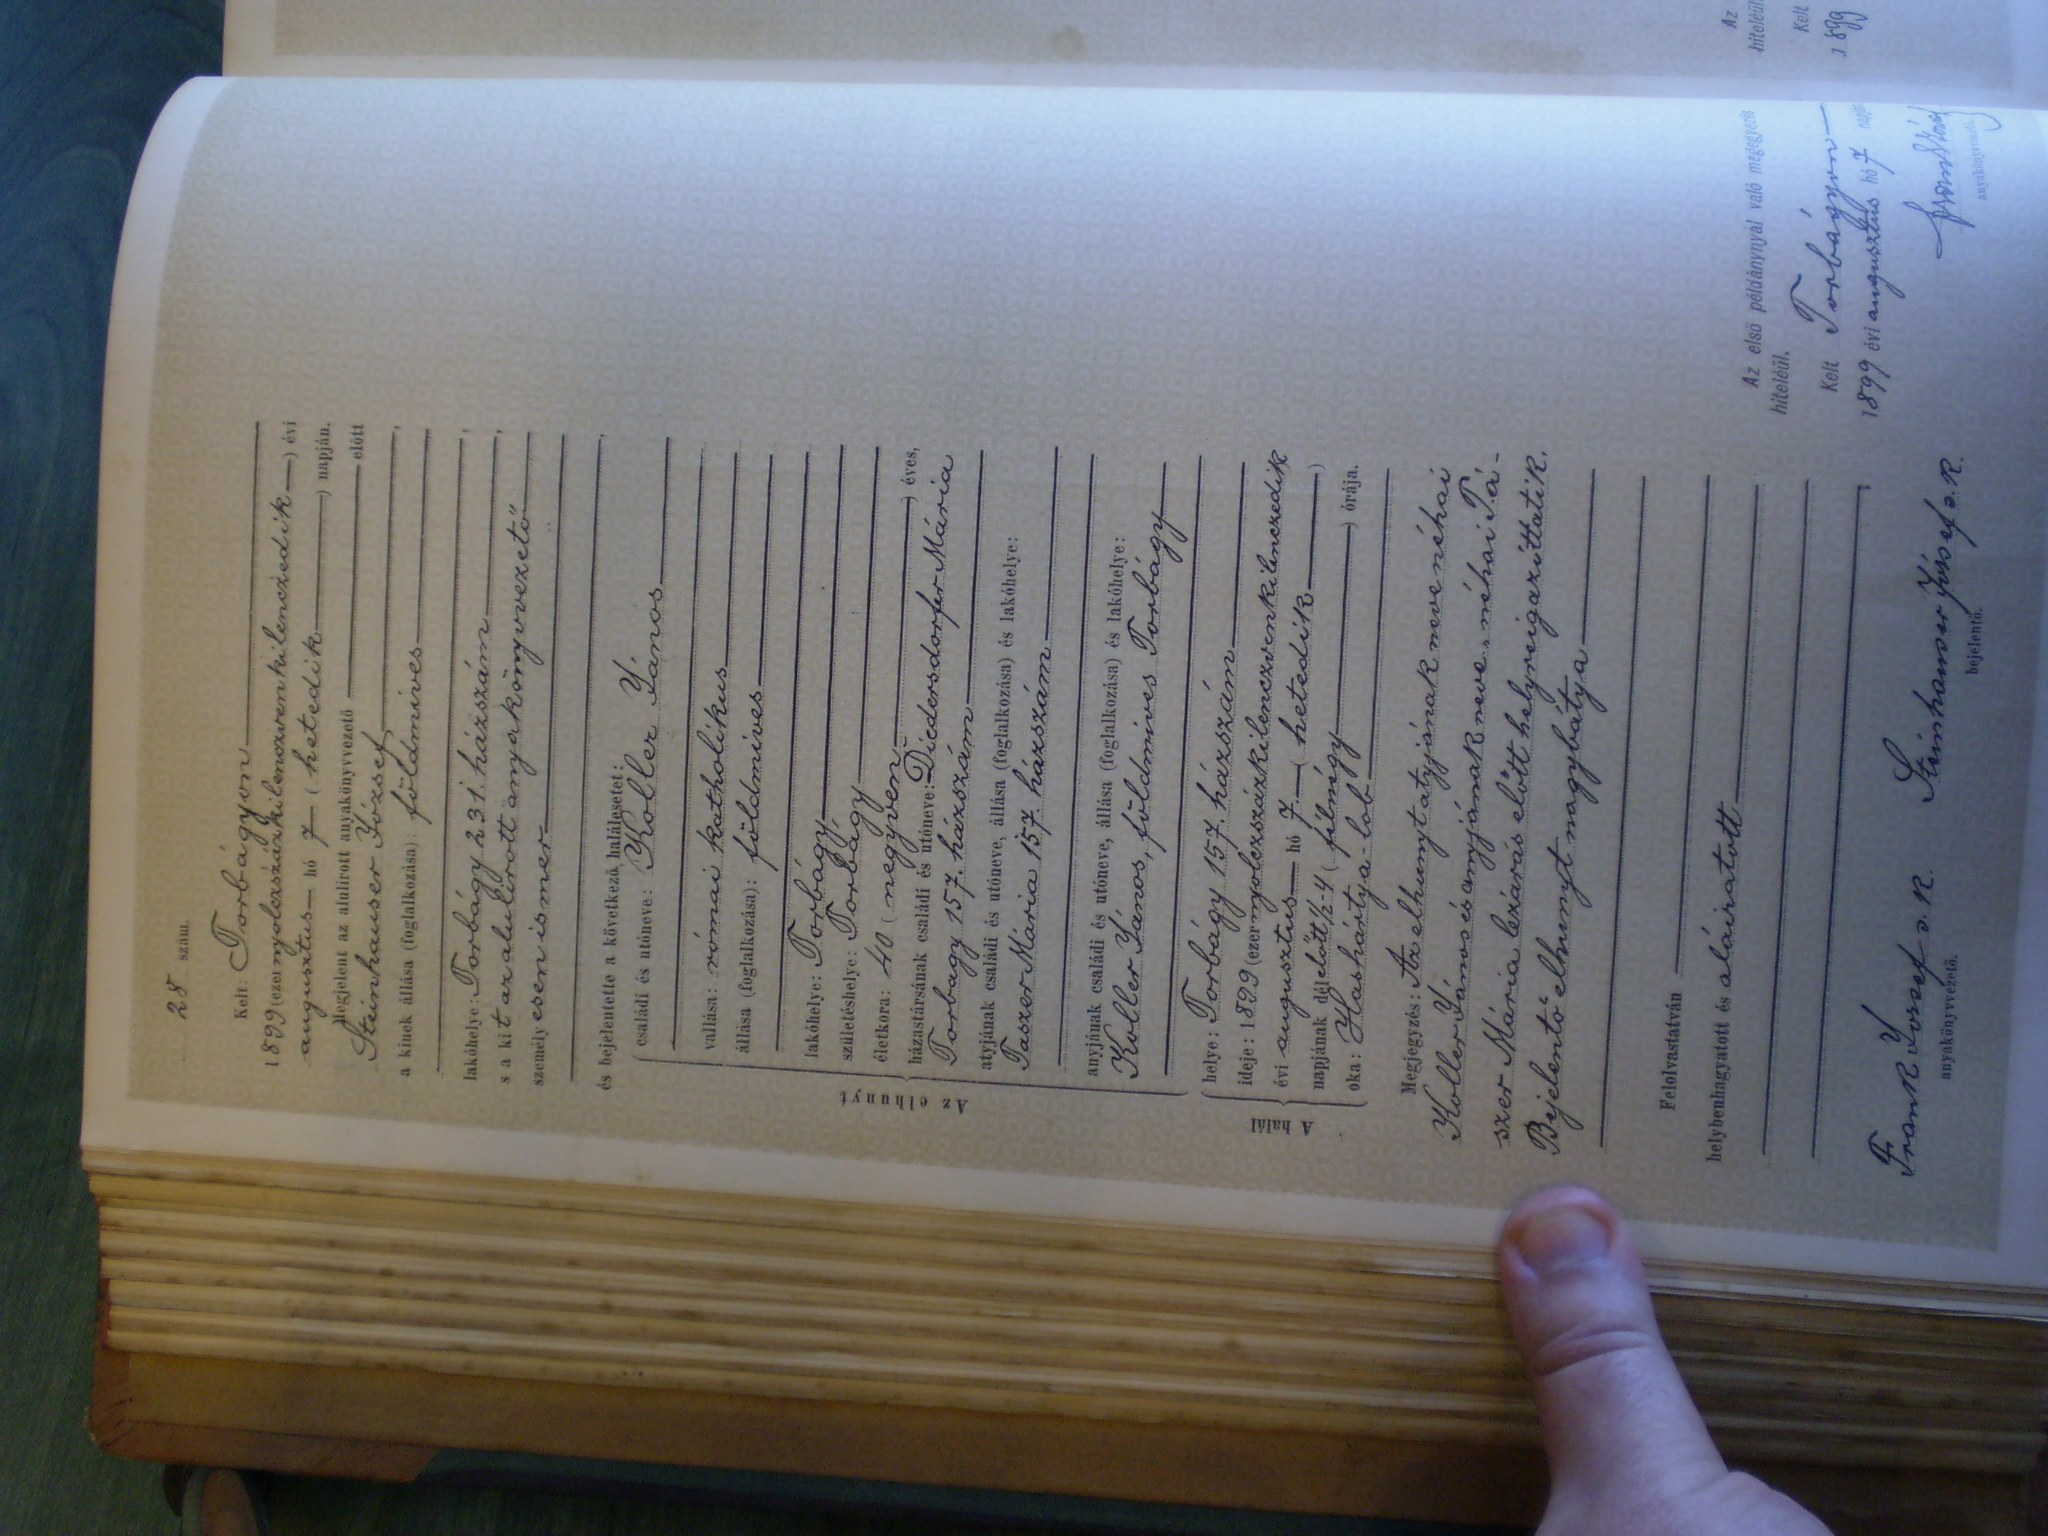 28 szám.
Kelt: Torbágyon
1899 (ezernyolczszázkilenczvenkilenczedik) évi
augusztus hó 7 (hetedik) napján.
Megjelent az alulirott anyakönyvvezető előtt
Steinhauser József,
a kinek állása (foglalkozása): földmives,
lakóhelye: Torbágy 231. házszám,
s a kit az alulirott anyakönyvvezető
személyesen ismer
és bejelentette a következő halálesetet:
Az elhunyt
családi és utóneve: Koller János
vallása: római katholikus
állása (foglalkozása): földmives
lakóhelye: Torbágy
születéshelye: Torbágy
életkora: 40 (negyven) éves,
házastársának családi és utóneve: Diedersdorfer Mária
Torbagy 157. házszám
atyjának családi és utóneve, állása (foglalkozása) és lakóhelye:
Taszer Mária 157 házszám
anyjának családi és utóneve, állása (foglalkozása) és lakóhelye:
Koller János, földmives Torbágy
A halál
helye: Torbágy 157. házszám
ideje: 1899 (ezernyolczszázkilenczvenkilenczedik
évi augusztus hó 7. (hetedik)
napjának dél előtt 1/2-4 (félnégy) órája.
oka: Hashártya-lob
Megjegyzés: Az elhunyt atyjának neve néhai
Koller János és anyjának neve „néhai Ta-
szer Mária lezárás előtt helyreigazittatik.
Bejelentő elhunyt nagybátya
Felolvastatván
helybenhagyatott és aláiratott
Frank József s. k.
anyakönyvvezető.
Steinhauser József s. k.
bejelentő.
Az első példánynyal való megegyezés
hiteléül.
Kelt Torbágyon
1899 évi augusztus hó 7 napján
anyakönyvvezető.
Az
hiteléül.
Kelt
1899